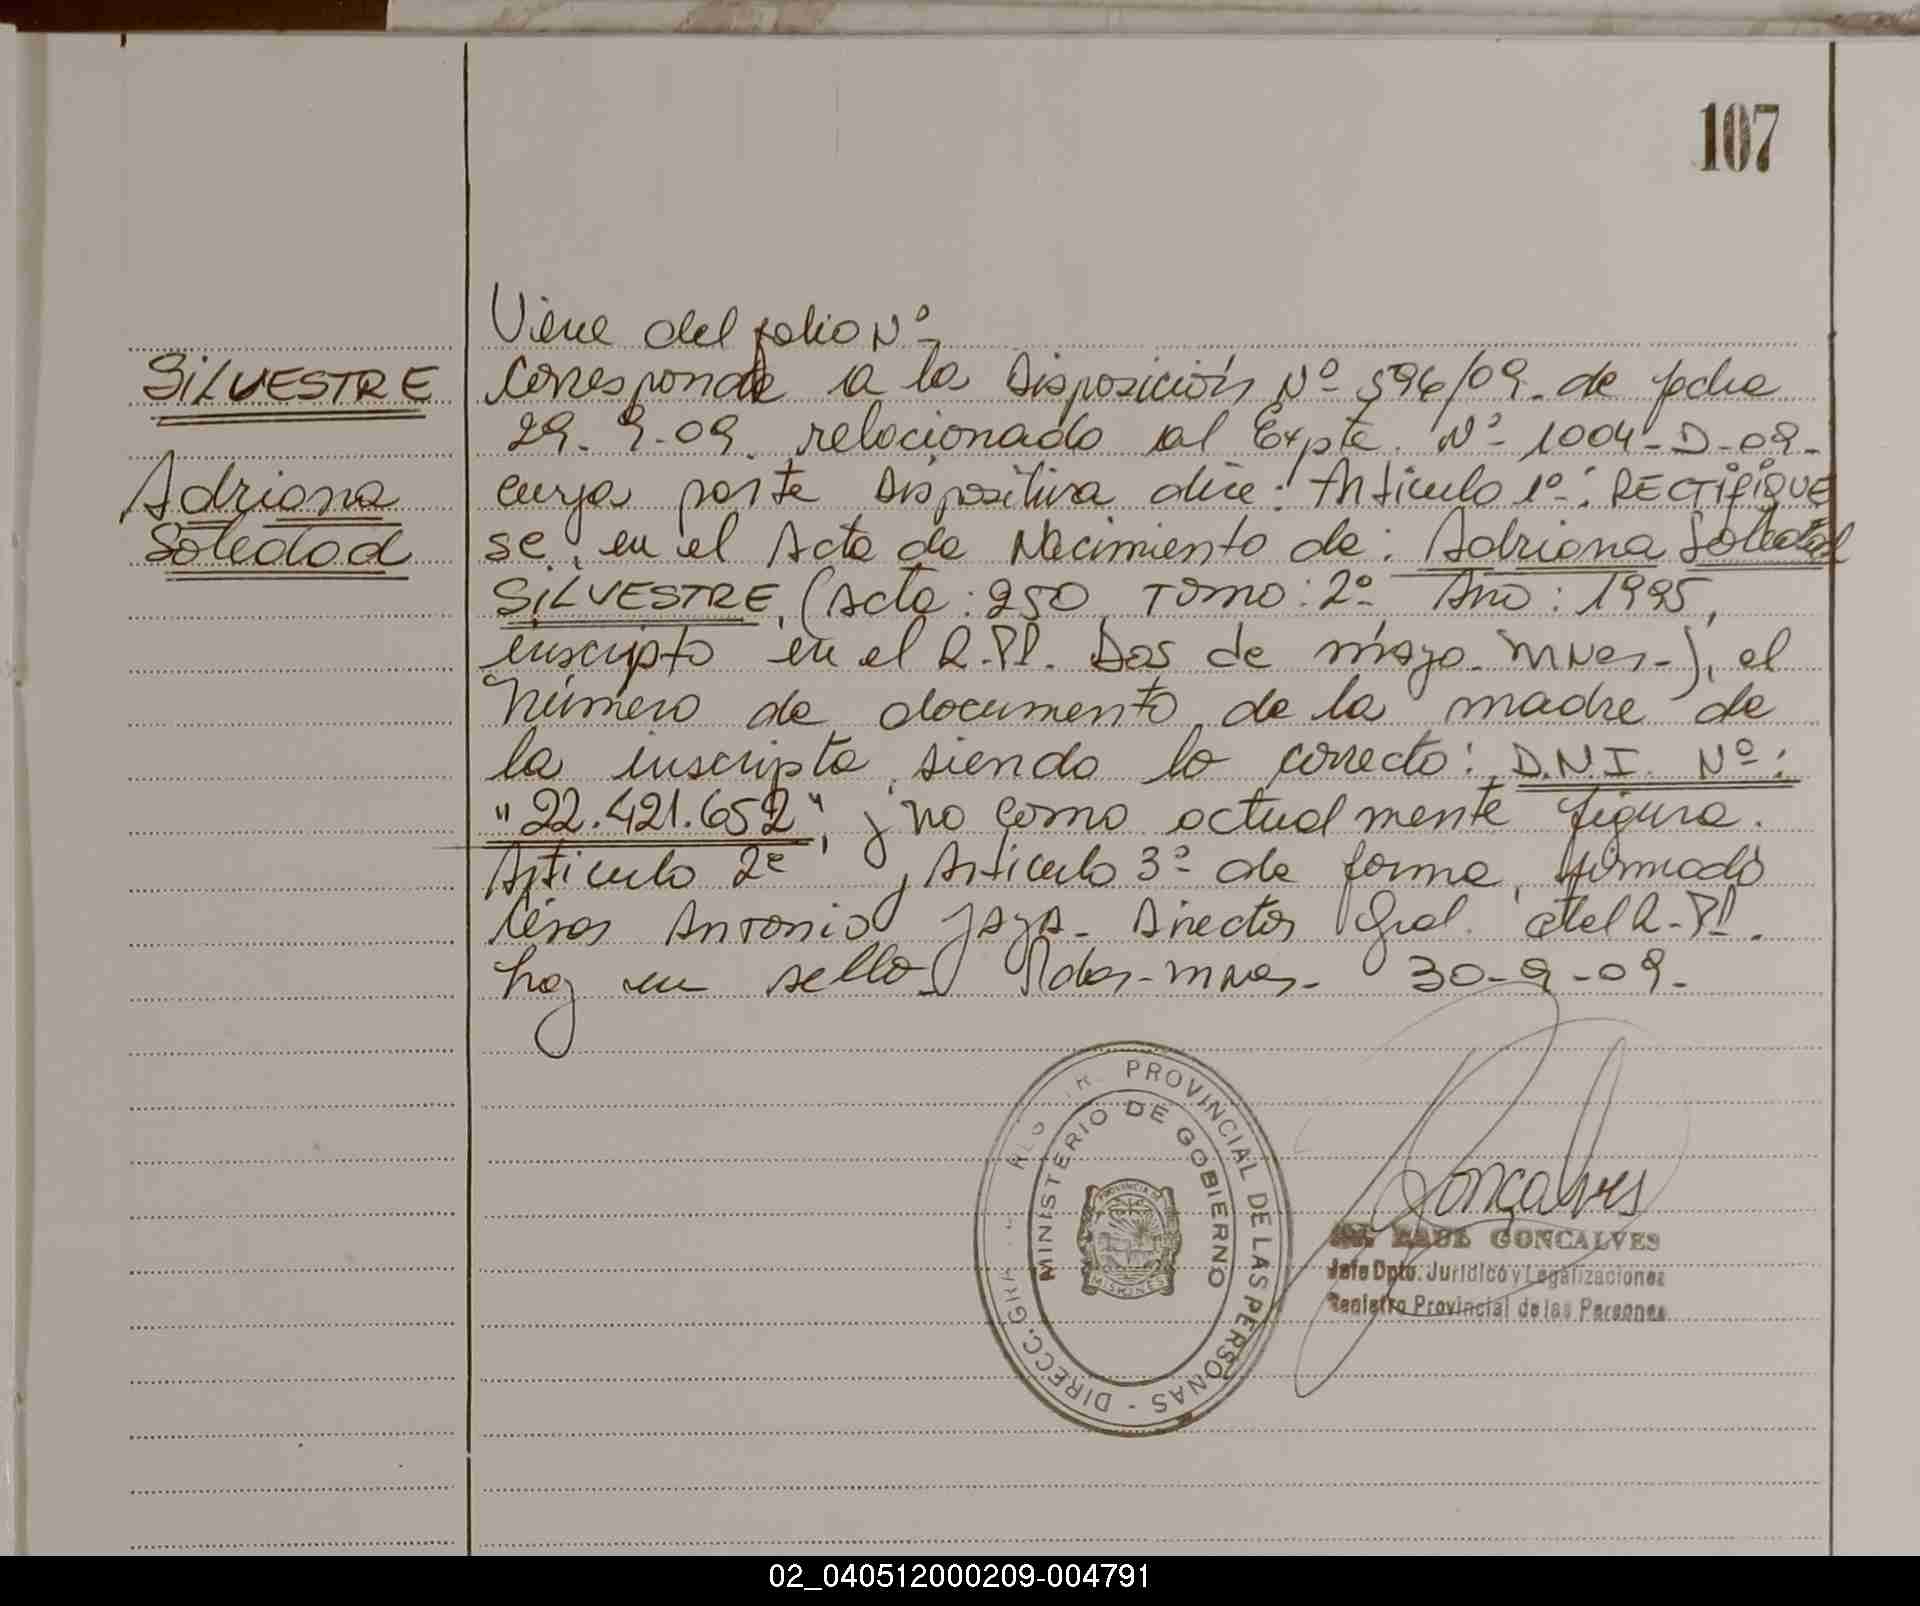 107
Viene del folio Nº-
SILVESTRE
Corresponde a la Disposición Nº 596/09. de fecha
29. 9-09. relacionado al Expte. Nº- 1004-D-09-
Adriana
cuya parte dispositiva dice: Artículo 1º-: RECTIFIQUE
Soledad
se, en el Acta de Nacimiento de: Adriana Soledad
SILVESTRE, (Acta: 250, Tomo: 2º- Año: 1995,
inscripto en el R.PP. Dos de mayo- Mnes-), el
Número de documento de la madre de
la inscripta, siendo lo correcto: D.N.I. Nº:
"22.421.652", y no como actualmente figura.
Artículo 2º y Artículo 3º- de forma, firmado
César Antonio JAYA- Director Gral. del R-PP.
hay un sello. Pdas-mnes- 30-9-09-
PROVINCIAL DE LAS PERSONAS - DIRECC. GRAL
MINISTERIO DE GOBIERNO
PROVINCIA DE
MISIONES
Goncalves
RAUL GONCALVES
Jefe Dpto. Jurídico y Legalizaciones
Registro Provincial de las Personas
02_040512000209-004791